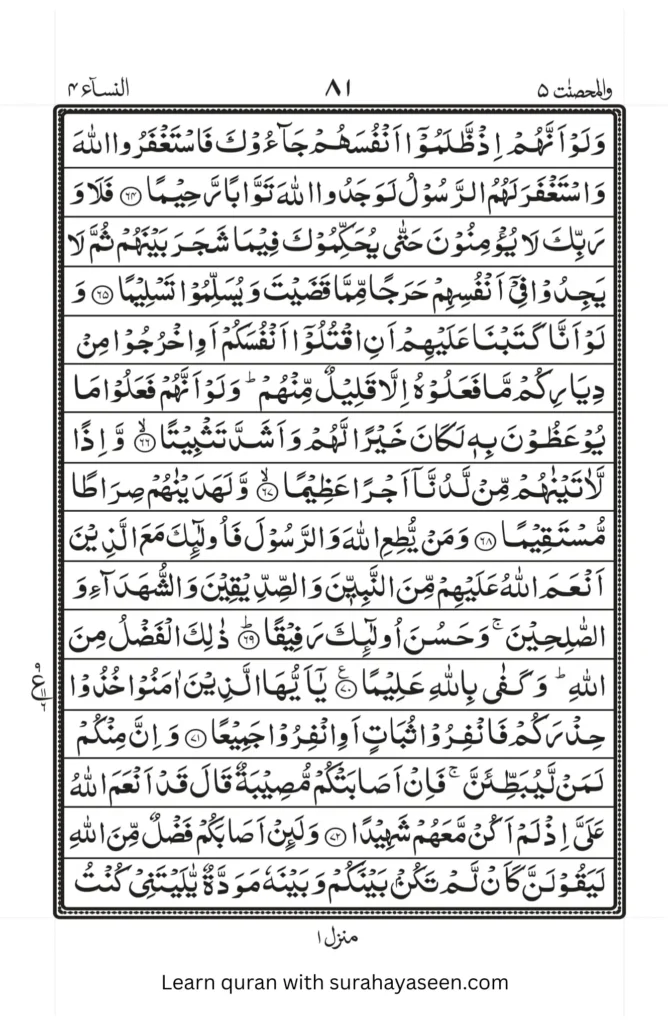 والمحصنٰت ۵ ۸۱ النسآء ۴
وَلَوْ اَنَّهُمْ اِذْ ظَّلَمُوْۤا اَنْفُسَهُمْ جَآءُوْكَ فَاسْتَغْفَرُوا اللّٰهَ
وَاسْتَغْفَرَ لَهُمُ الرَّسُوْلُ لَوَجَدُوا اللّٰهَ تَوَّابًا رَّحِیْمًا ﴿۶۴﴾ فَلَا وَ
رَبِّكَ لَا یُؤْمِنُوْنَ حَتّٰی یُحَكِّمُوْكَ فِیْمَا شَجَرَ بَیْنَهُمْ ثُمَّ لَا
یَجِدُوْا فِیْۤ اَنْفُسِهِمْ حَرَجًا مِّمَّا قَضَیْتَ وَیُسَلِّمُوْا تَسْلِیْمًا ﴿۶۵﴾ وَ
لَوْ اَنَّا كَتَبْنَا عَلَیْهِمْ اَنِ اقْتُلُوْۤا اَنْفُسَكُمْ اَوِ اخْرُجُوْا مِنْ
دِیَارِكُمْ مَّا فَعَلُوْهُ اِلَّا قَلِیْلٌ مِّنْهُمْ ؕ وَلَوْ اَنَّهُمْ فَعَلُوْا مَا
یُوْعَظُوْنَ بِهٖ لَكَانَ خَیْرًا لَّهُمْ وَاَشَدَّ تَثْبِیْتًا ﴿۶۶﴾ۙ وَّاِذًا
لَّاٰتَیْنٰهُمْ مِّنْ لَّدُنَّاۤ اَجْرًا عَظِیْمًا ﴿۶۷﴾ۙ وَّلَهَدَیْنٰهُمْ صِرَاطًا
مُّسْتَقِیْمًا ﴿۶۸﴾ وَمَنْ یُّطِعِ اللّٰهَ وَالرَّسُوْلَ فَاُولٰٓئِكَ مَعَ الَّذِیْنَ
اَنْعَمَ اللّٰهُ عَلَیْهِمْ مِّنَ النَّبِیّٖنَ وَالصِّدِّیْقِیْنَ وَالشُّهَدَآءِ وَ
الصّٰلِحِیْنَ ۚ وَحَسُنَ اُولٰٓئِكَ رَفِیْقًا ﴿۶۹﴾ؕ ذٰلِكَ الْفَضْلُ مِنَ
اللّٰهِ ؕ وَكَفٰی بِاللّٰهِ عَلِیْمًا ﴿۷۰﴾ع یٰۤاَیُّهَا الَّذِیْنَ اٰمَنُوْا خُذُوْا
حِذْرَكُمْ فَانْفِرُوْا ثُبَاتٍ اَوِ انْفِرُوْا جَمِیْعًا ﴿۷۱﴾ وَاِنَّ مِنْكُمْ
لَمَنْ لَّیُبَطِّئَنَّ ۚ فَاِنْ اَصَابَتْكُمْ مُّصِیْبَةٌ قَالَ قَدْ اَنْعَمَ اللّٰهُ
عَلَیَّ اِذْ لَمْ اَكُنْ مَّعَهُمْ شَهِیْدًا ﴿۷۲﴾ وَلَئِنْ اَصَابَكُمْ فَضْلٌ مِّنَ اللّٰهِ
لَیَقُوْلَنَّ كَاَنْ لَّمْ تَكُنْۢ بَیْنَكُمْ وَبَیْنَهٗ مَوَدَّةٌ یّٰلَیْتَنِیْ كُنْتُ
منزل ۱
Learn quran with surahayaseen.com